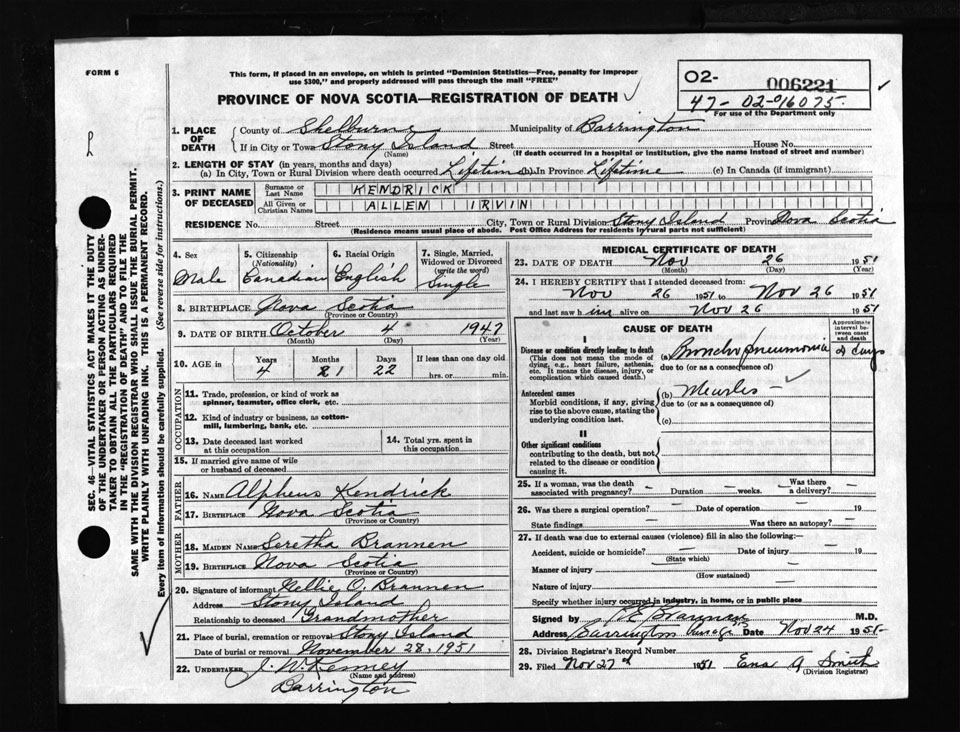 FORM 6
This form, if placed in an envelope, on which is printed "Dominion Statistics—Free, penalty for improper
use $300," and properly addressed will pass through the mail "FREE"
PROVINCE OF NOVA SCOTIA—REGISTRATION OF DEATH ✓
02- 006221 ✓
47-02-016075.
For use of the Department only
1. PLACE OF DEATH
County of Shelburne Municipality of Barrington
If in City or Town Stony Island Street House No.
(Name) (If death occurred in a hospital or institution, give the name instead of street and number)
2. LENGTH OF STAY (in years, months and days)
(a) In City, Town or Rural Division where death occurred Lifetime (b) In Province Lifetime (c) In Canada (if immigrant)
3. PRINT NAME OF DECEASED
Surname or Last Name KENDRICK
All Given or Christian Names ALLEN IRVIN
RESIDENCE No. Street City, Town or Rural Division Stony Island Province Nova Scotia
(Residence means usual place of abode. Post Office Address for residents in rural parts not sufficient)
4. Sex
Male
5. Citizenship
(Nationality)
Canadian
6. Racial Origin
English
7. Single, Married,
Widowed or Divorced
(write the word)
Single
8. BIRTHPLACE Nova Scotia
(Province or Country)
9. DATE OF BIRTH October 4 1947
(Month) (Day) (Year)
10. AGE in
Years Months Days If less than one day old
4 1 22 hrs. or min.
OCCUPATION
11. Trade, profession, or kind of work as
spinner, teamster, office clerk, etc.
12. Kind of industry or business, as cotton-
mill, lumbering, bank, etc.
13. Date deceased last worked
at this occupation
14. Total yrs. spent in
this occupation
15. If married give name of wife
or husband of deceased
FATHER
16. NAME Alpheus Kendrick
17. BIRTHPLACE Nova Scotia
(Province or Country)
MOTHER
18. MAIDEN NAME Seretha Brannen
19. BIRTHPLACE Nova Scotia
(Province or Country)
20. Signature of informant Nellie O. Brannen
Address Stony Island
Relationship to deceased Grandmother
21. Place of burial, cremation or removal Stony Island
Date of burial or removal November 28, 1951
22. UNDERTAKER J. W. Kenney
(Name and address)
Barrington
MEDICAL CERTIFICATE OF DEATH
23. DATE OF DEATH Nov 26 1951
(Month) (Day) (Year)
24. I HEREBY CERTIFY that I attended deceased from:
Nov 26 1951 to Nov 26 1951
and last saw him alive on Nov 26 1951
CAUSE OF DEATH
Approximate
interval between
onset and death
I
Disease or condition directly leading to death
(This does not mean the mode of
dying, e.g., heart failure, asthenia,
etc. It means the disease, injury, or
complication which caused death.)
(a) Broncho pneumonia 2 days
due to (or as a consequence of)
Antecedent causes
Morbid conditions, if any, giving
rise to the above cause, stating the
underlying condition last.
(b) Measles ✓
due to (or as a consequence of)
(c)
II
Other significant conditions
contributing to the death, but not
related to the disease or condition
causing it.
25. If a woman, was the death
associated with pregnancy? — Duration — weeks. Was there
a delivery? —
26. Was there a surgical operation? — Date of operation — 19
State findings — Was there an autopsy? —
27. If death was due to external causes (violence) fill in also the following:—
Accident, suicide or homicide? — Date of injury — 19
(State which)
Manner of injury —
(How sustained)
Nature of injury —
Specify whether injury occurred in industry, in home, or in public place
Signed by M.D.
Address Barrington Date Nov 24 1951
28. Division Registrar's Record Number
29. Filed Nov 27 1951 Ena A Smith
(Division Registrar)
SEC. 46—VITAL STATISTICS ACT MAKES IT THE DUTY
OF THE UNDERTAKER OR PERSON ACTING AS UNDER-
TAKER TO OBTAIN ALL THE PARTICULARS REQUIRED
IN THE "REGISTRATION OF DEATH" AND TO FILE THE
SAME WITH THE DIVISION REGISTRAR WHO SHALL ISSUE THE BURIAL PERMIT.
WRITE PLAINLY WITH UNFADING INK. THIS IS A PERMANENT RECORD.
Every item of information should be carefully supplied. (See reverse side for instructions.)